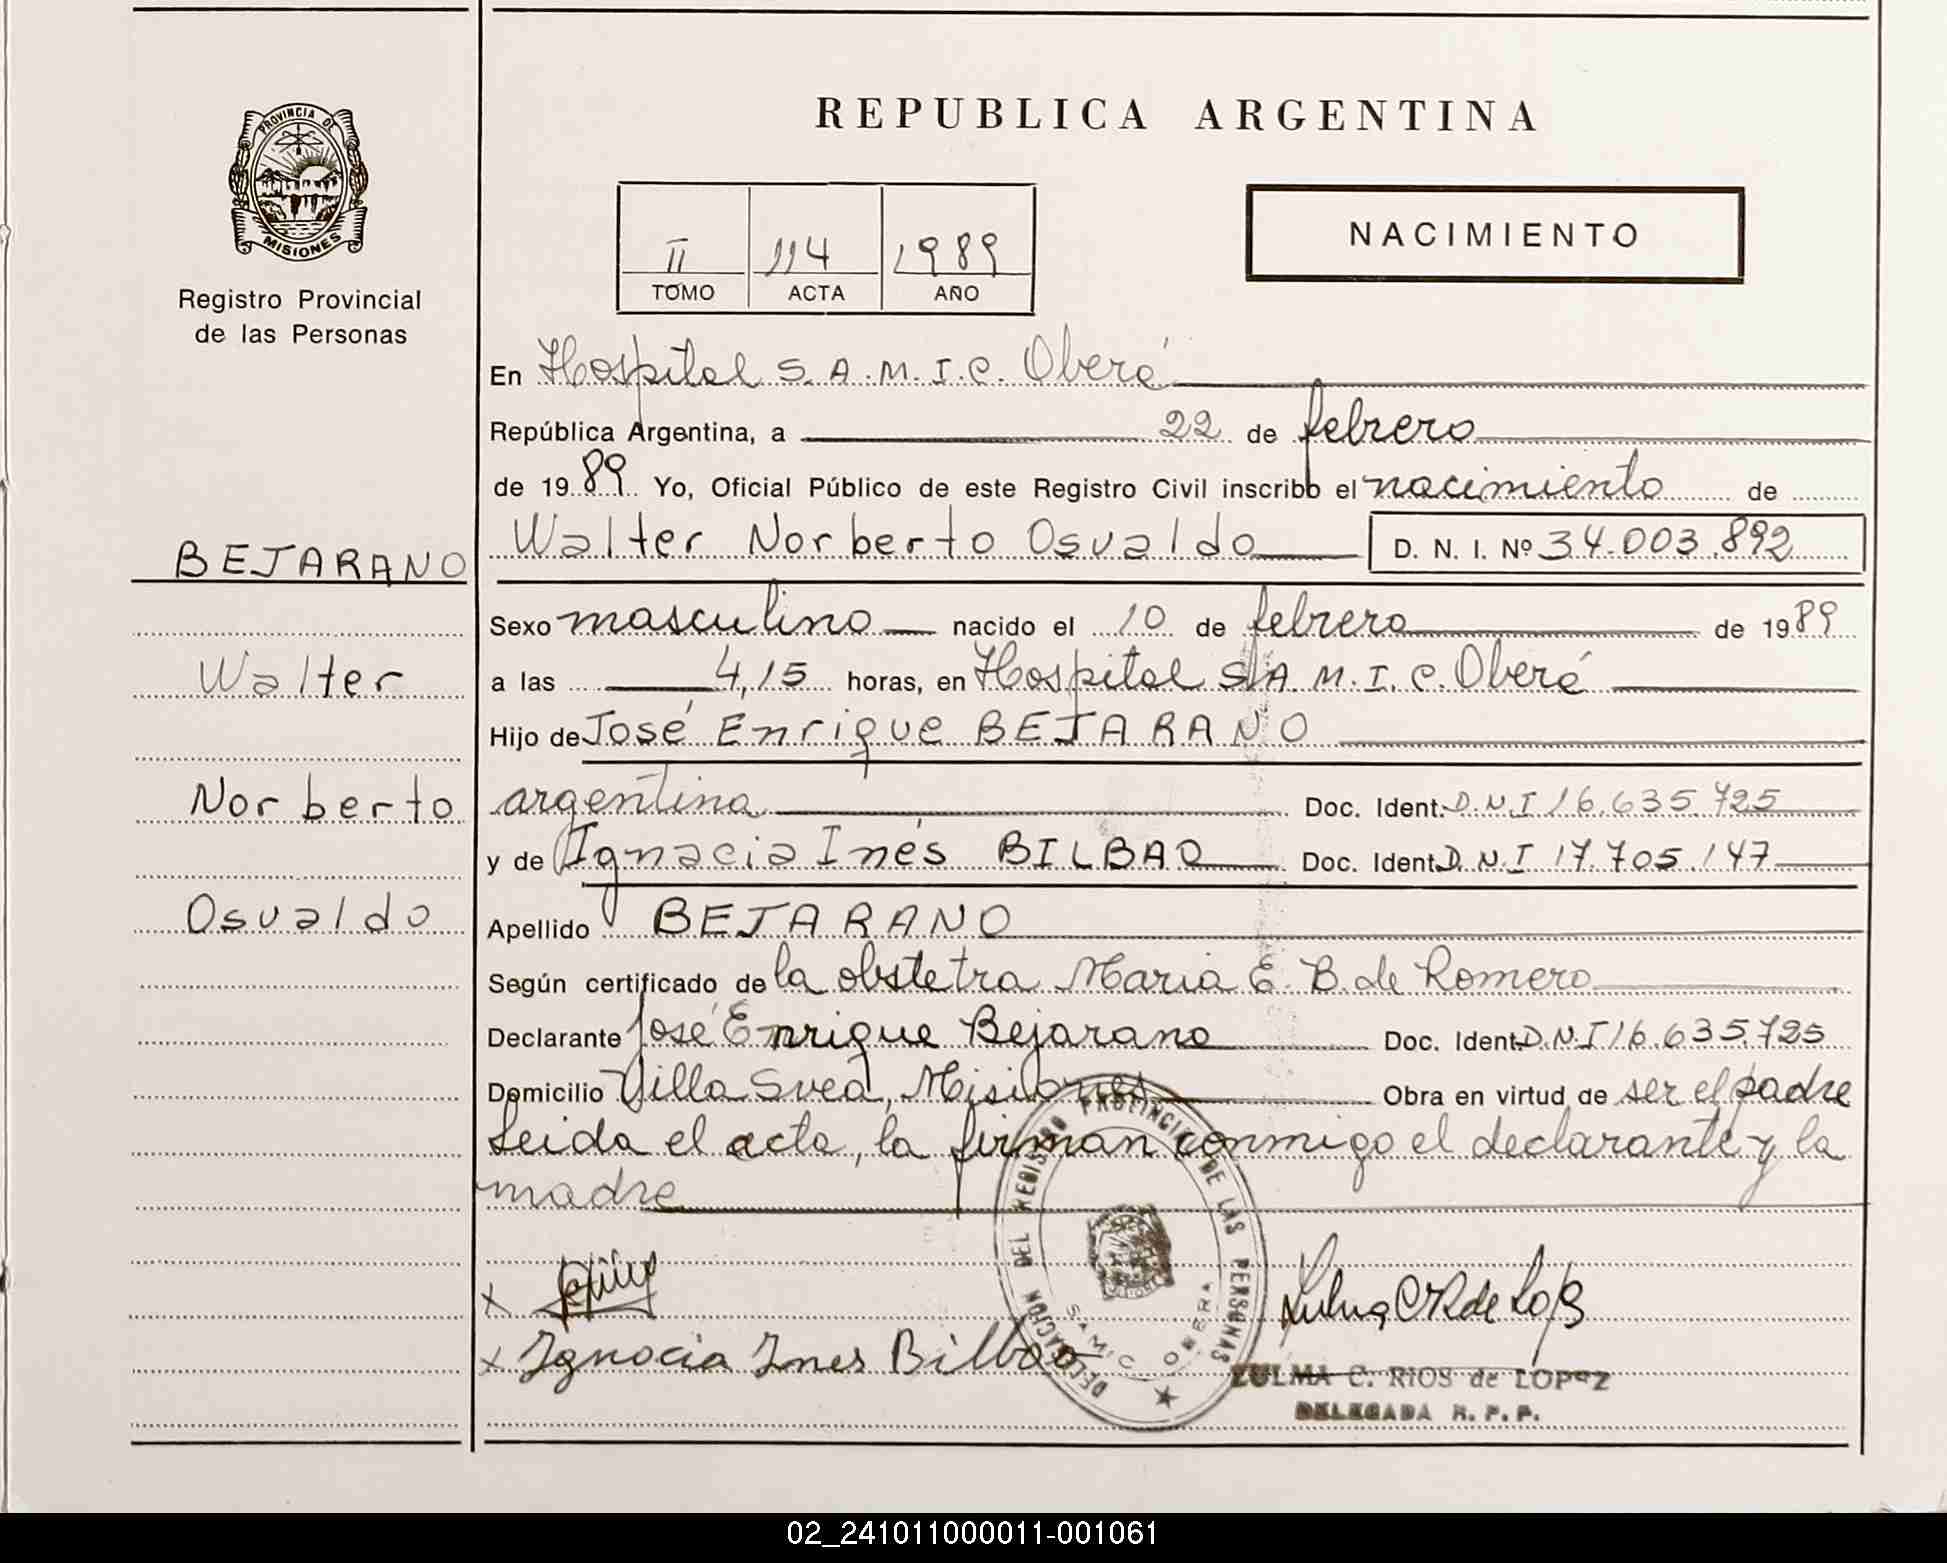 REPUBLICA ARGENTINA
PROVINCIA DE
MISIONES
Registro Provincial
de las Personas
NACIMIENTO
II 114 1989
TOMO ACTA AÑO
En Hospital S.A.M.I.C. Oberá
República Argentina, a 22 de febrero
de 1989 Yo, Oficial Público de este Registro Civil inscribo el nacimiento de
Walter Norberto Osvaldo D. N. I. Nº 34.003.892
BEJARANO
Walter
Norberto
Osvaldo
Sexo masculino nacido el 10 de febrero de 1989
a las 4,15 horas, en Hospital S.A.M.I.C. Oberá
Hijo de José Enrique BEJARANO
argentina Doc. Ident. D.N.I 16.635.725
y de Ignacia Inés BILBAO Doc. Ident. D.N.I 17.705.147
Apellido BEJARANO
Según certificado de la obstetra Maria E. B. de Romero
Declarante José Enrique Bejarano Doc. Ident. D.N.I 16.635.725
Domicilio Villa Svea, Misiones Obra en virtud de ser el padre
Leida el acta, la firman conmigo el declarante y la
madre
x
x Ignacia Ines Bilbao
DELEGACION DEL REGISTRO PROVINCIAL DE LAS PERSONAS
S.A.M.I.C. OBERA
ZULMA C. RIOS de LOPEZ
DELEGADA R. P. P.
02_241011000011-001061